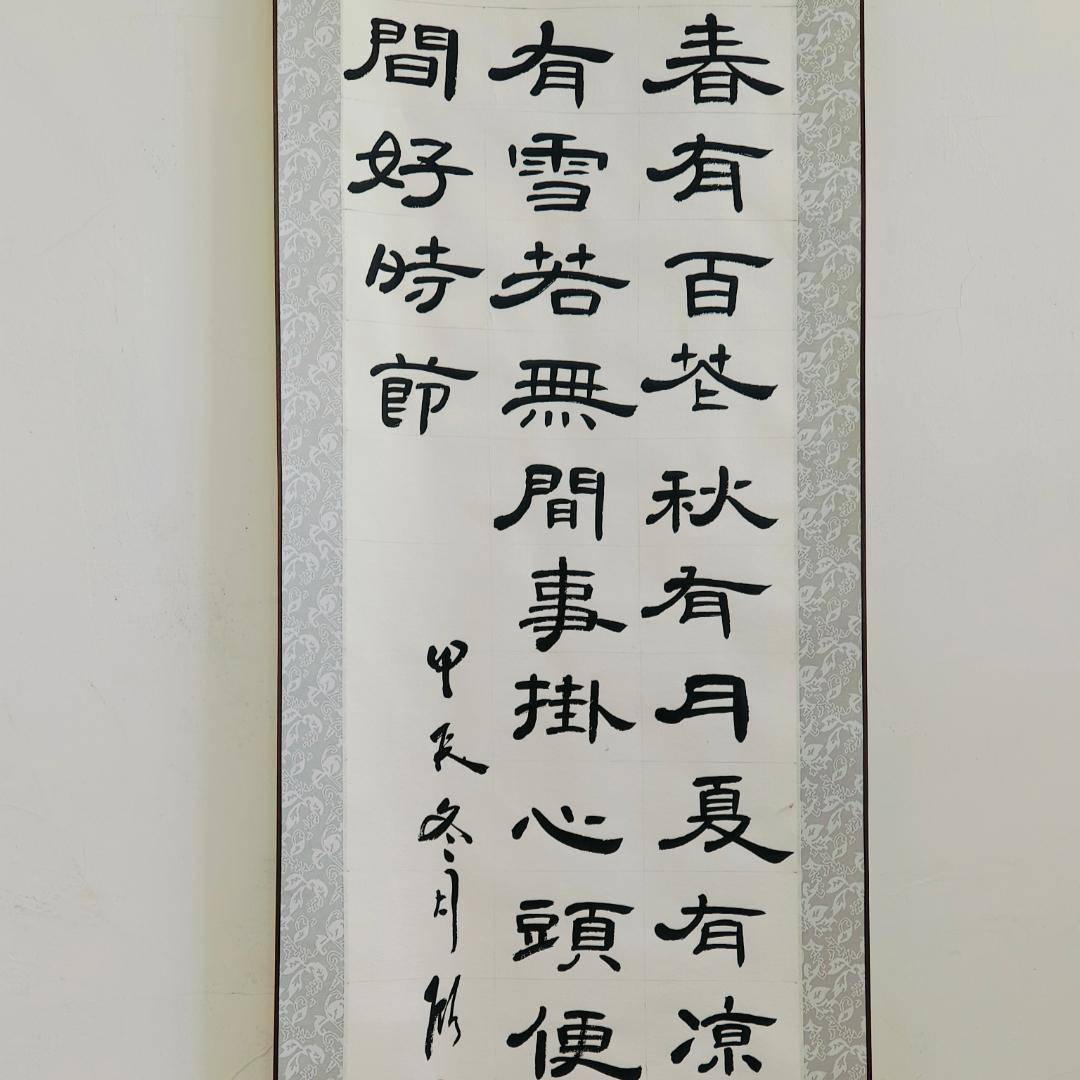 春有百花秋有月夏有凉
有雪若無間事掛心頭便
間好時節
甲辰冬月